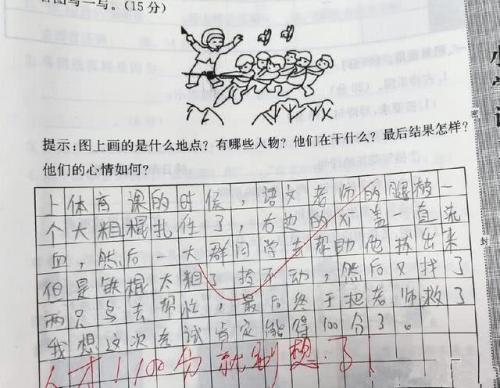 看图写一写。(15分)
提示:图上画的是什么地点?有哪些人物?他们在干什么?最后结果怎样?
他们的心情如何?
上体育课的时候,语文老师的腿被一
个大粗棍扎住了,右边的膝盖一直流
血,然后一大群同学去帮助他拔出来
但是铁棍太粗了拔不动,然后又找了
两只鸟去帮忙,最后终于把老师救了
我想这次考试肯定能得100分了。
人才!100分就别想了!